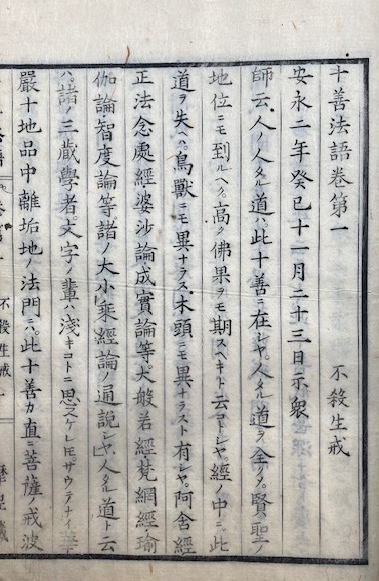 十善法語卷第一　不殺生戒
安永二年癸巳十一月二十三日示衆
師云。人ノ人タル道ハ。此十善ニ在シヤ。人タル道ヲ全クメ。賢聖ノ
地位ニモ到ルヘク。高ク佛果ヲモ期スヘキト云コトシヤ。經ノ中ニ。此
道ヲ失ヘハ。鳥獸ニモ異ナラス。木頭ニモ異ナラスト有シヤ。阿含經
正法念處經婆沙論成實論等。大般若經梵網經瑜
伽論智度論等。諸ノ大小乘經論ノ通説シヤ。人タル道ト云
ハ。諸ノ三藏學者。文字ノ輩ハ淺キコトニ思ヘケレモ。サウテナイ。華
嚴十地品中離垢地ノ法門ニハ。此十善カ直ニ菩薩ノ戒波
不殺生戒